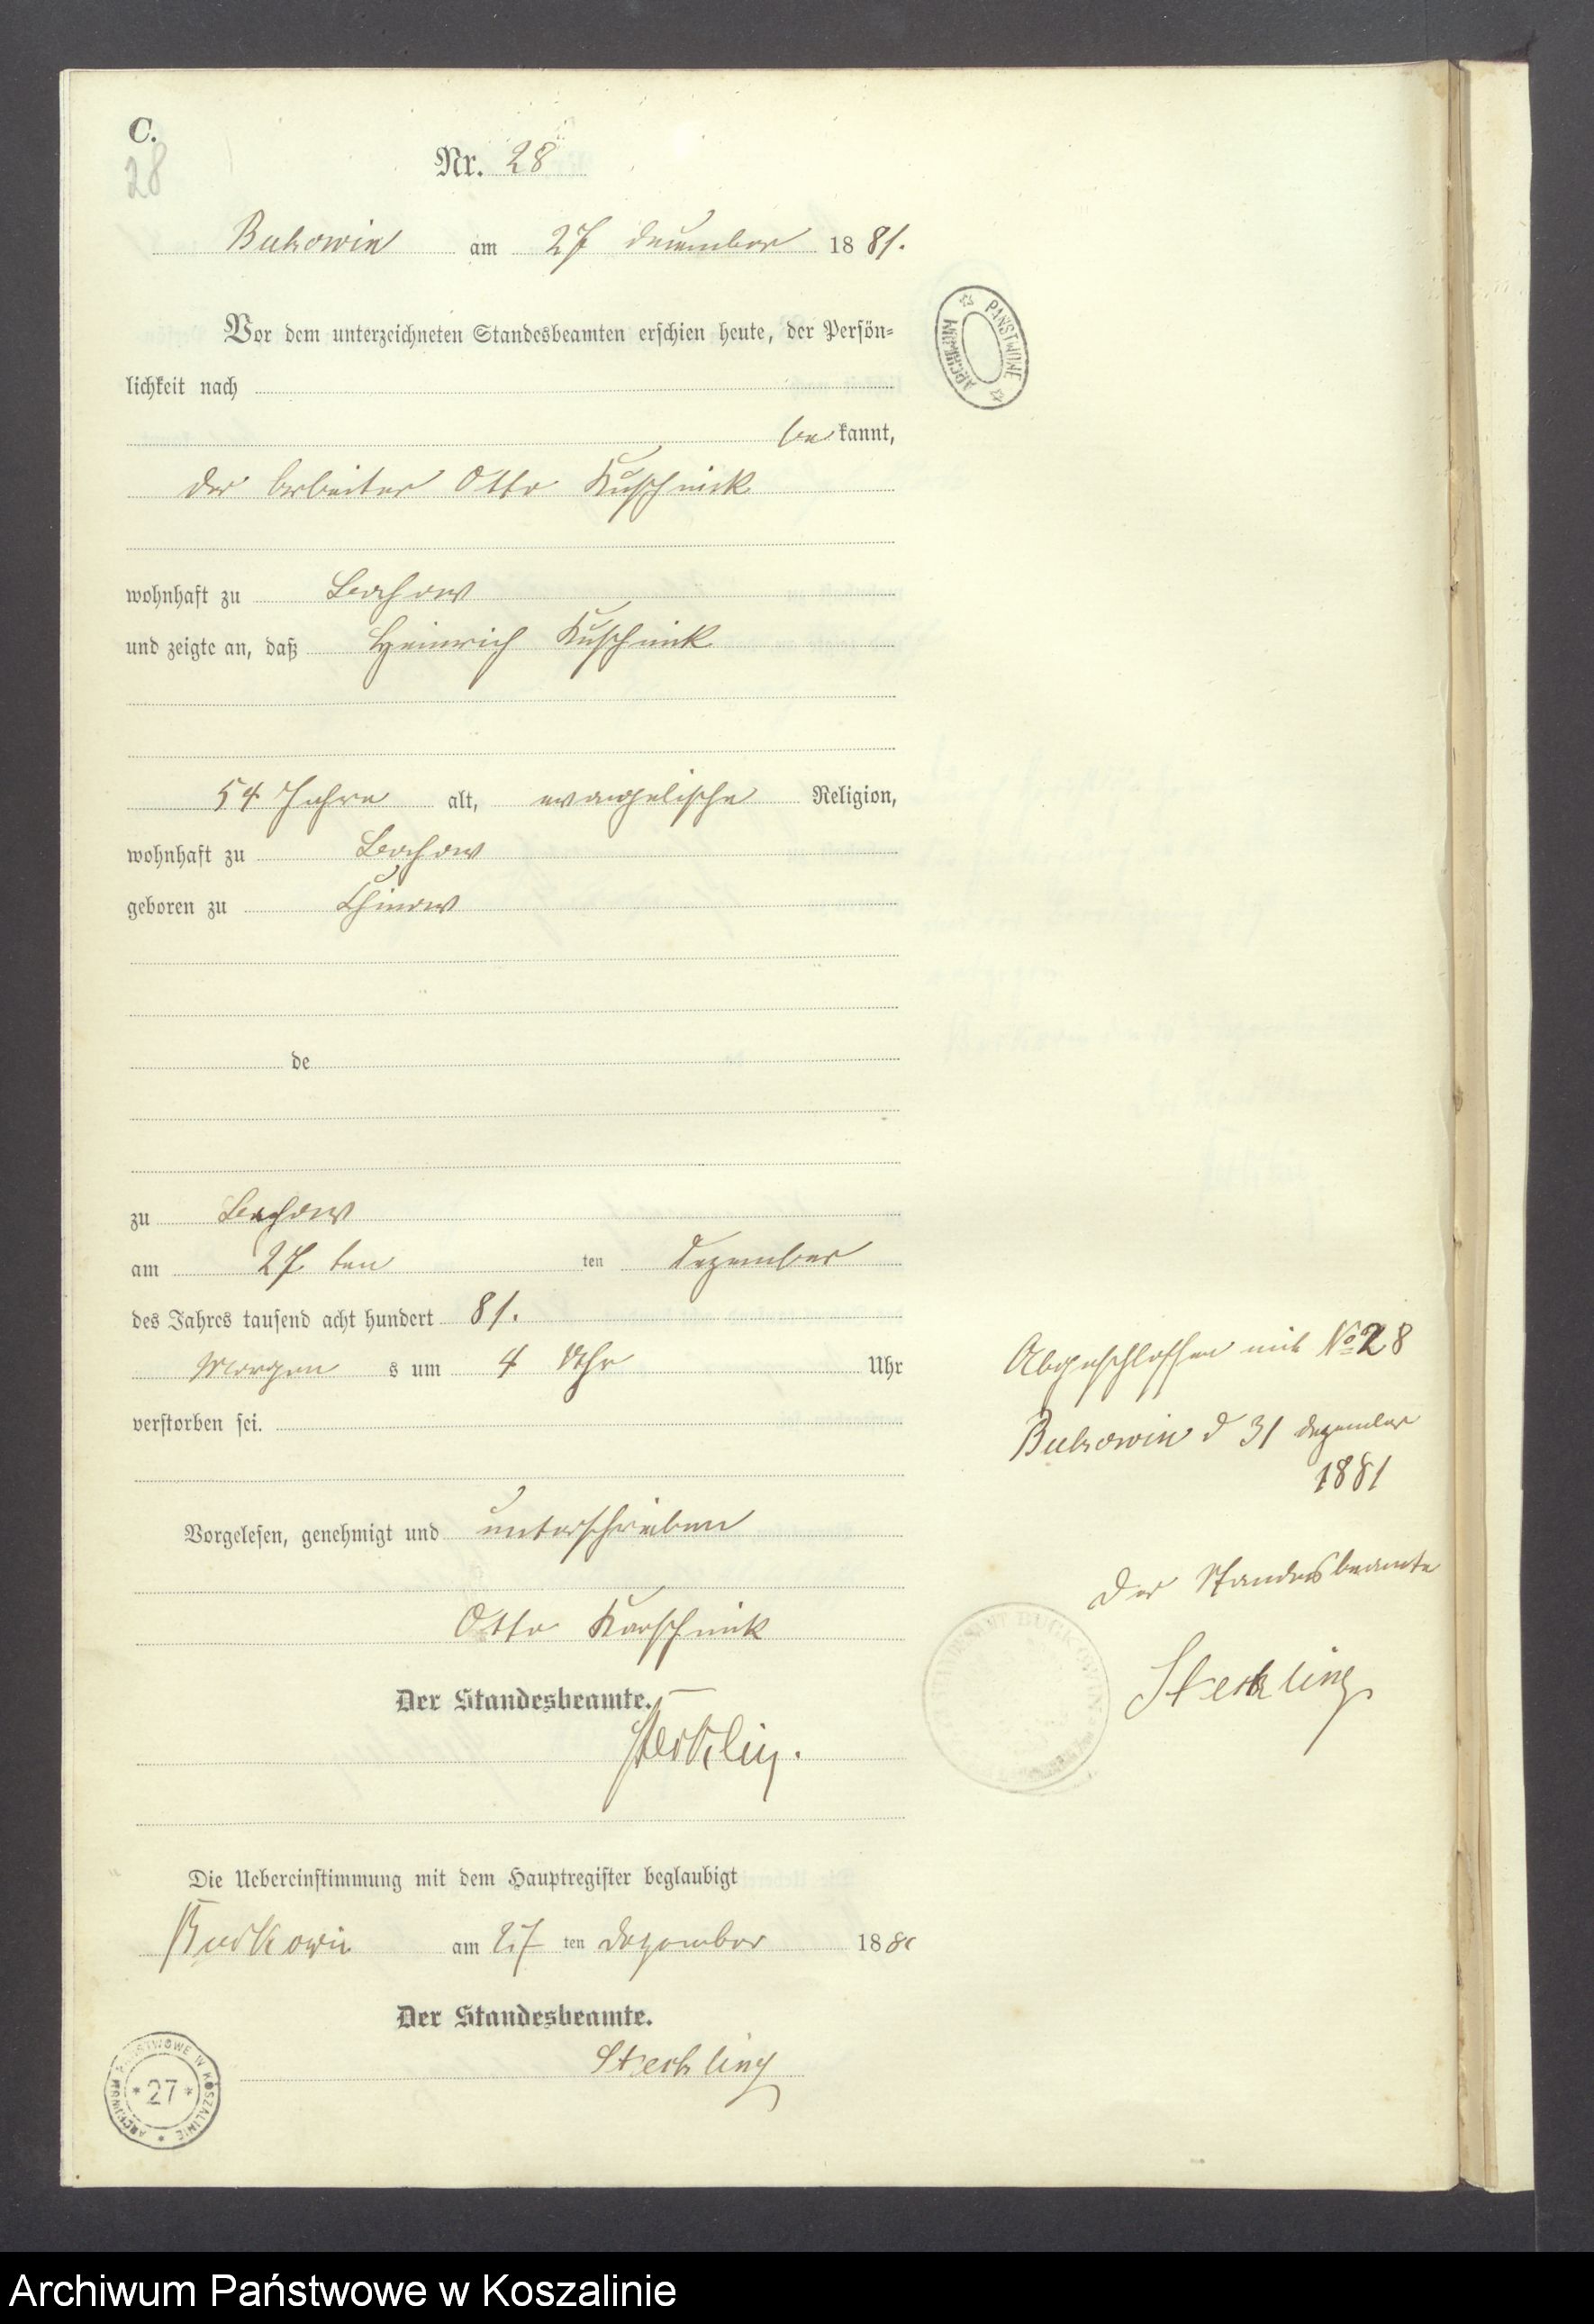 C.
28
Nr. 28
Bukowin am 27 December 1881.
Vor dem unterzeichneten Standesbeamten erschien heute, der Persön=
lichkeit nach
be kannt,
der Arbeiter Otto Kuschnick
wohnhaft zu
und zeigte an, daß Heinrich Kuschnick
54 Jahre alt, evangelische Religion,
wohnhaft zu
geboren zu Chinow
de
zu
am 27 ten ten Dezember
des Jahres tausend acht hundert 81.
Morgen s um 4 Uhr Uhr
verstorben sei.
Vorgelesen, genehmigt und unterschrieben
Otto Kuschnick
Der Standesbeamte.
Sterkling.
Die Uebereinstimmung mit dem Hauptregister beglaubigt
Buckowin am 27 ten Dezember 1881
Der Standesbeamte.
Sterkling
PAŃSTWOWE ARCHIWUM
Abgeschlossen mit No 28
Bukowin d 31 Dezember
1881
Der Standesbeamte
Sterkling
STANDESAMT BUCKOWIN
ARCHIWUM PAŃSTWOWE W KOSZALINIE
* 27 *
Archiwum Państwowe w Koszalinie